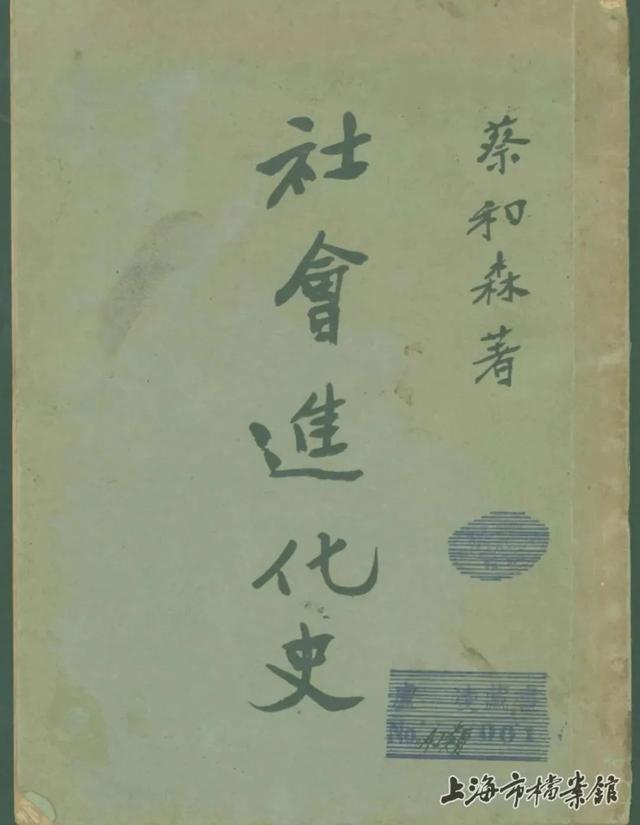 蔡和森著
社會進化史
藏書
No. 001
上海市檔案館